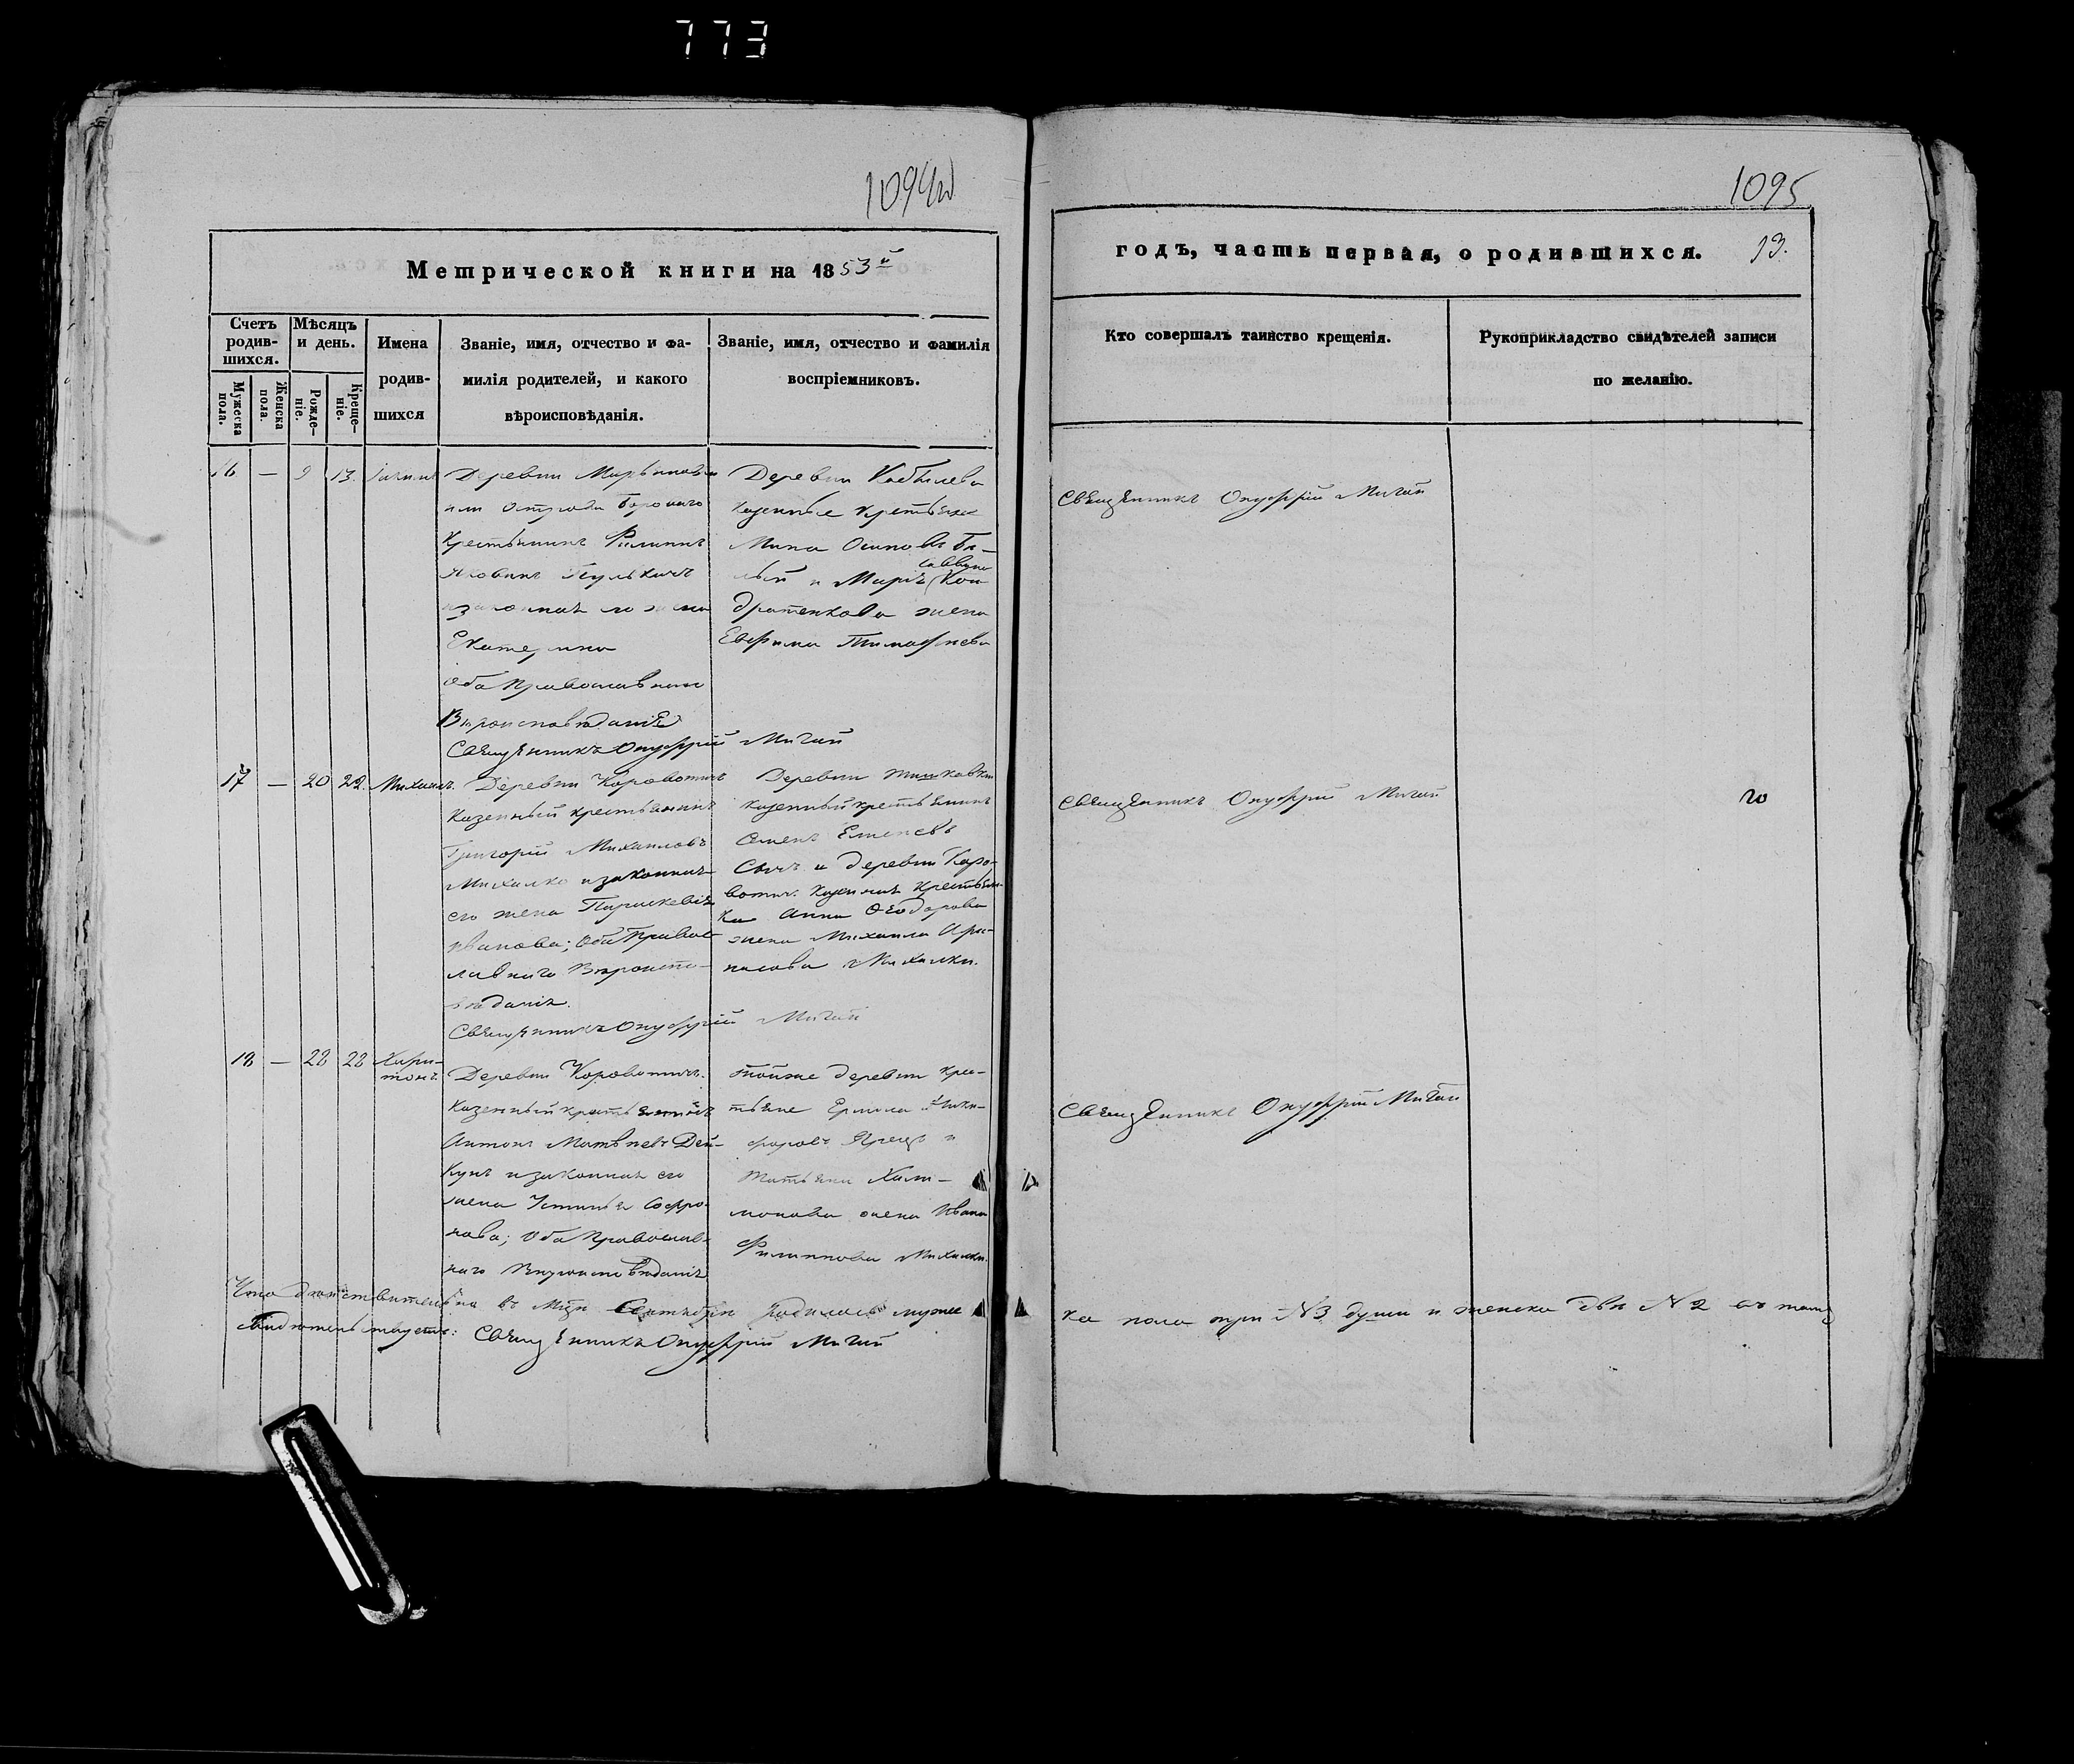 773
1094
1095
Метрической книги на 1853й
годъ, часть первая, о родившихся. 13.
Счетъ родив-шихся.
Мужеска пола.
Женска пола.
Мѣсяцъ и день.
Рожде-ніе.
Креще-ніе.
Имена
родив-
шихся
Званіе, имя, отчество и фа-
милія родителей, и какого
вѣроисповѣданія.
Званіе, имя, отчество и фамилія
воспріемниковъ.
Кто совершалъ таинство крещенія.
Рукоприкладство свидѣтелей записи
по желанію.
16 — 9 13
Деревни
Крестьянинъ Филиппъ
жена
Екатерина
Оба Православнаго
Вѣроисповѣданія
Священникъ Онуфрій Мигай
Деревни Кобылева
казенные крестьяне
Мина Осиповъ Бѣ-
лый и Марія Кон-
дратенкова жена
Ефима Тимофѣева
Священникъ Онуфрій Мигай
17 — 20 22. Михаилъ.
Деревни Коровотичъ
Казенный крестьянинъ
Григорій Михаиловъ
Михалко и законная
его жена Параскевія
Иванова; Оба Правос-
лавнаго Вѣроиспо-
вѣданія.
Священникъ Онуфрій Мигай
Деревни
казенный крестьянинъ
Семенъ
Сычъ и деревни Коро-
вотичъ казенная крестьян-
ка Анна Ѳеодорова
жена Михаила
Михалки.
Священникъ Онуфрій Мигай
18 — 28 28 Хари-
тонъ.
Деревни Коровотичъ.
Казенный крестьянинъ
Антонъ Матвѣевъ Дей-
кунъ и законная его
жена Устинья Софро-
нова; Оба Православ-
наго Вѣроисповѣданія
тойже деревни кре-
стьяне Ермила Ники-
форовъ и
Татьяна
жена Ивана
Филиппова Михалки.
Священникъ Онуфрій Мигай
Что дѣйствительно въ Мцѣ Сентябрѣ родилось муже
ска пола три №3 души и женска двѣ №2 въ томъ
свидѣтельствуетъ: Священникъ Онуфрій Мигай